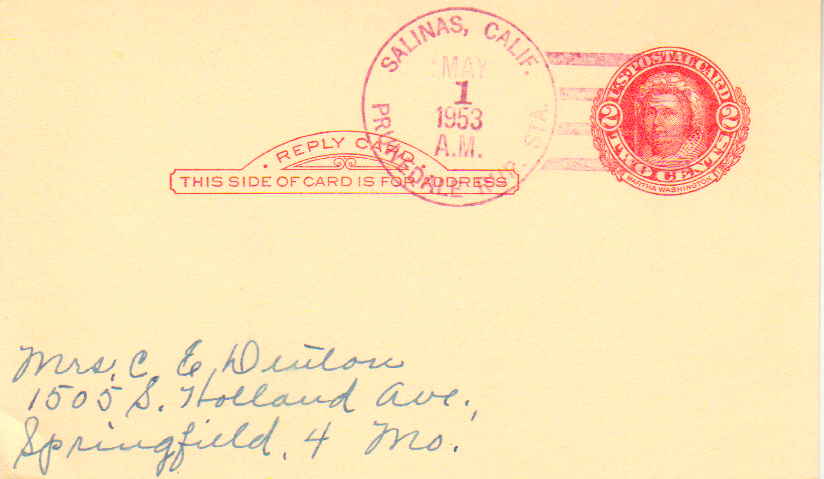 SALINAS, CALIF.
MAY
1
1953
A.M.
PRUNEDALE RUR. STA.
U.S. POSTAL CARD
2 2
TWO CENTS
MARTHA WASHINGTON
· REPLY CARD ·
THIS SIDE OF CARD IS FOR ADDRESS
Mrs. C. E. Denton
1505 S. Holland Ave.,
Springfield, 4 Mo.